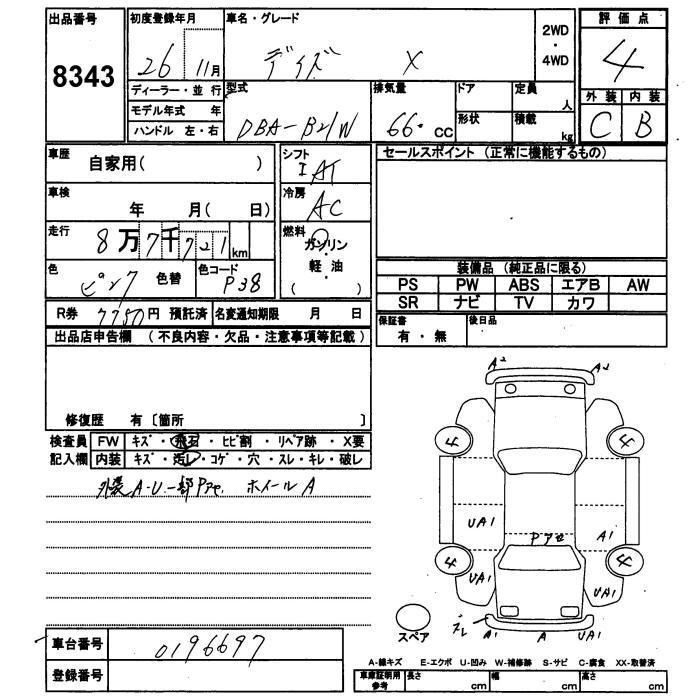 出品番号 8343
初度登録年月 26 11月
車名・グレード デイズ X
2WD・4WD
評価点 4
外装 内装
C B
ディーラー・並 行
モデル年式 年
ハンドル 左・右
型式 DBA-B21W
排気量 66. CC
ドア
形状
定員 人
積載 kg
車歴 自家用( )
車検 年 月( 日)
走行 8万7千721km
色 ピンク 色替
色コード P38
シフト I AT
冷房 AC
燃料 ガソリン
軽・油
( )
セールスポイント (正常に機能するもの)
装備品 (純正品に限る)
PS PW ABS エアB AW
SR ナビ TV カワ
R券 7750円 預託済 名変通知期限 月 日
保証書 有・無
後日品
出品店申告欄 (不良内容・欠品・注意事項等記載)
修復歴 有〔箇所 〕
検査員 FW キズ・飛石・ヒビ割・リペア跡・X要
記入欄 内装 キズ・汚レ・コゲ・穴・スレ・キレ・破レ
外装 A-U.一部Pアセ. ホイールA
A2 A2
4 4
UA1 Pアセ A1
4 4
UA1 UA1
スペア ズレ A1 A UA1
車台番号 0196697
登録番号
A-線キズ E-エクボ U-凹み W-補修跡 S-サビ C-腐食 XX-取替済
車庫証明用参考 長さ cm 幅 cm 高さ cm